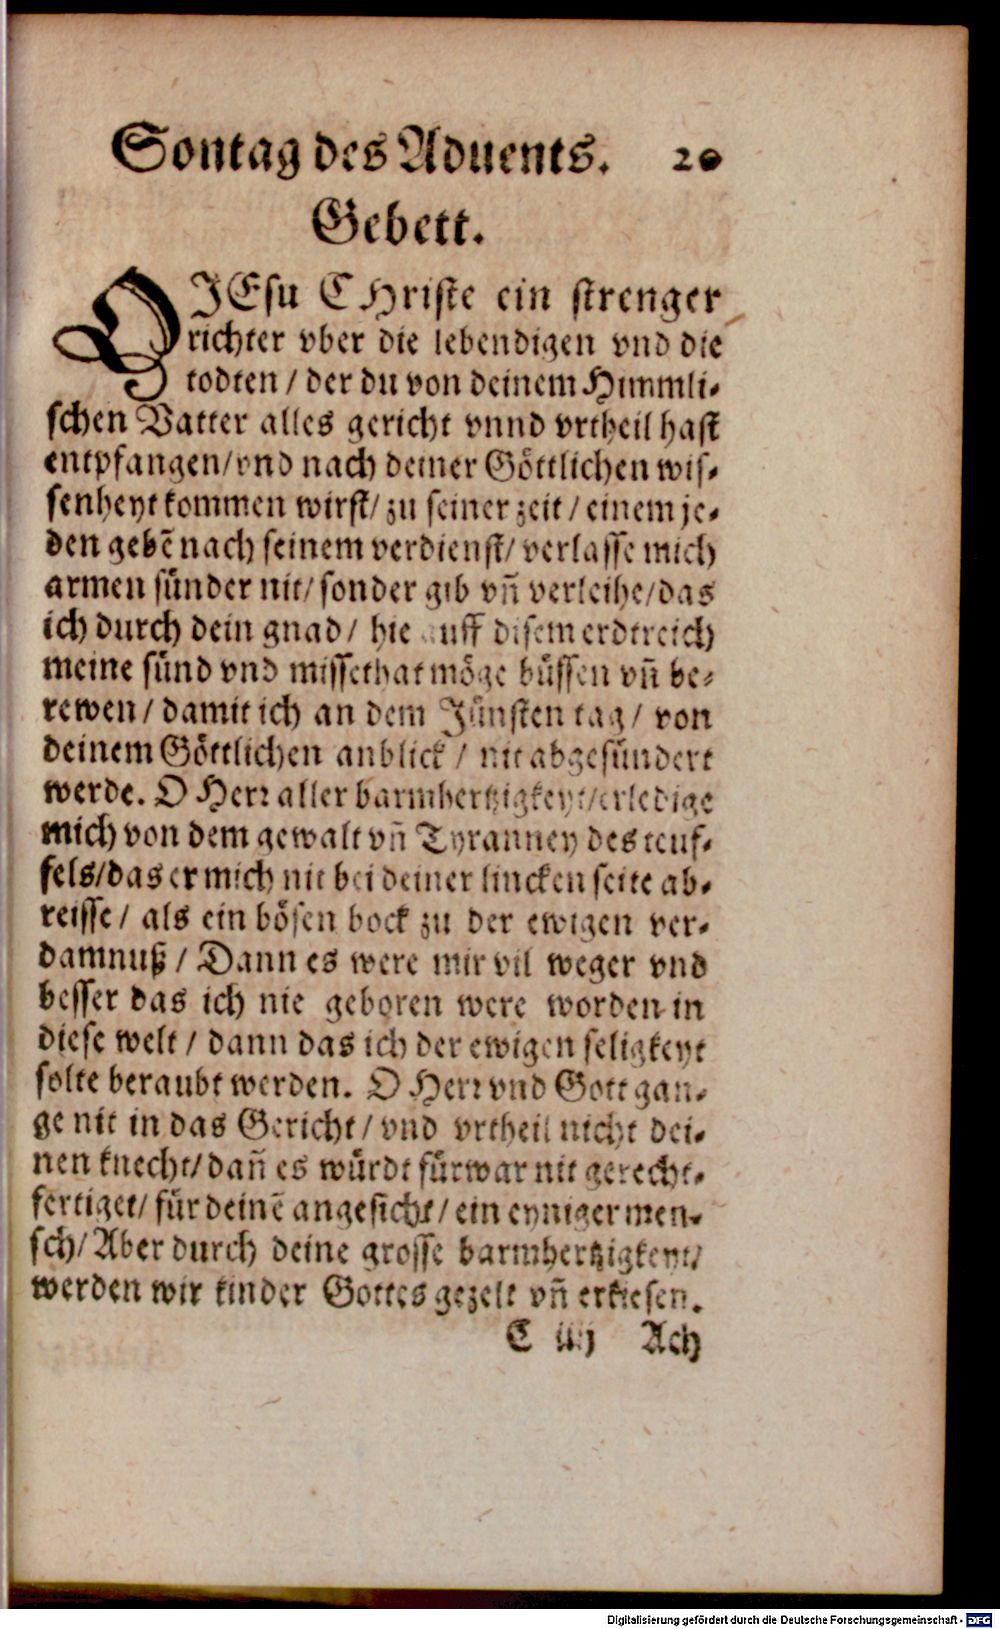 Sontag des Aduents. 20
Gebett.
O JEsu CHriste ein strenger
richter vber die lebendigen vnd die
todten / der du von deinem Himmli-
schen Vatter alles gericht vnnd vrtheil hast
entpfangen/vnd nach deiner Göttlichen wis-
senheyt kommen wirst/ zu seiner zeit / einem je-
den gebē nach seinem verdienst/ verlasse mich
armen sünder nit/ sonder gib vn̄ verleihe/das
ich durch dein gnad / hie auff disem erdtreich
meine sünd vnd missethat möge büssen vn̄ be-
rewen / damit ich an dem Jünsten tag / von
deinem Göttlichen anblick / nit abgesündert
werde. O Herr aller barmhertzigkeyt/erledige
mich von dem gewalt vn̄ Tyranney des teuf-
fels/das er mich nit bei deiner lincken seite ab-
reisse / als ein bösen bock zu der ewigen ver-
damnuß / Dann es were mir vil weger vnd
besser das ich nie geboren were worden in
diese welt / dann das ich der ewigen seligkeyt
solte beraubt werden. O Herr vnd Gott gan-
ge nit in das Gericht / vnd vrtheil nicht dei-
nen knecht/ dan̄ es würdt fürwar nit gerecht-
fertiget/ für deinē angesicht / ein eyniger men-
sch/ Aber durch deine grosse barmhertzigkeyt/
werden wir kinder Gottes gezelt vn̄ erkiesen.
C iiij Ach
Digitalisierung gefördert durch die Deutsche Forschungsgemeinschaft - DFG